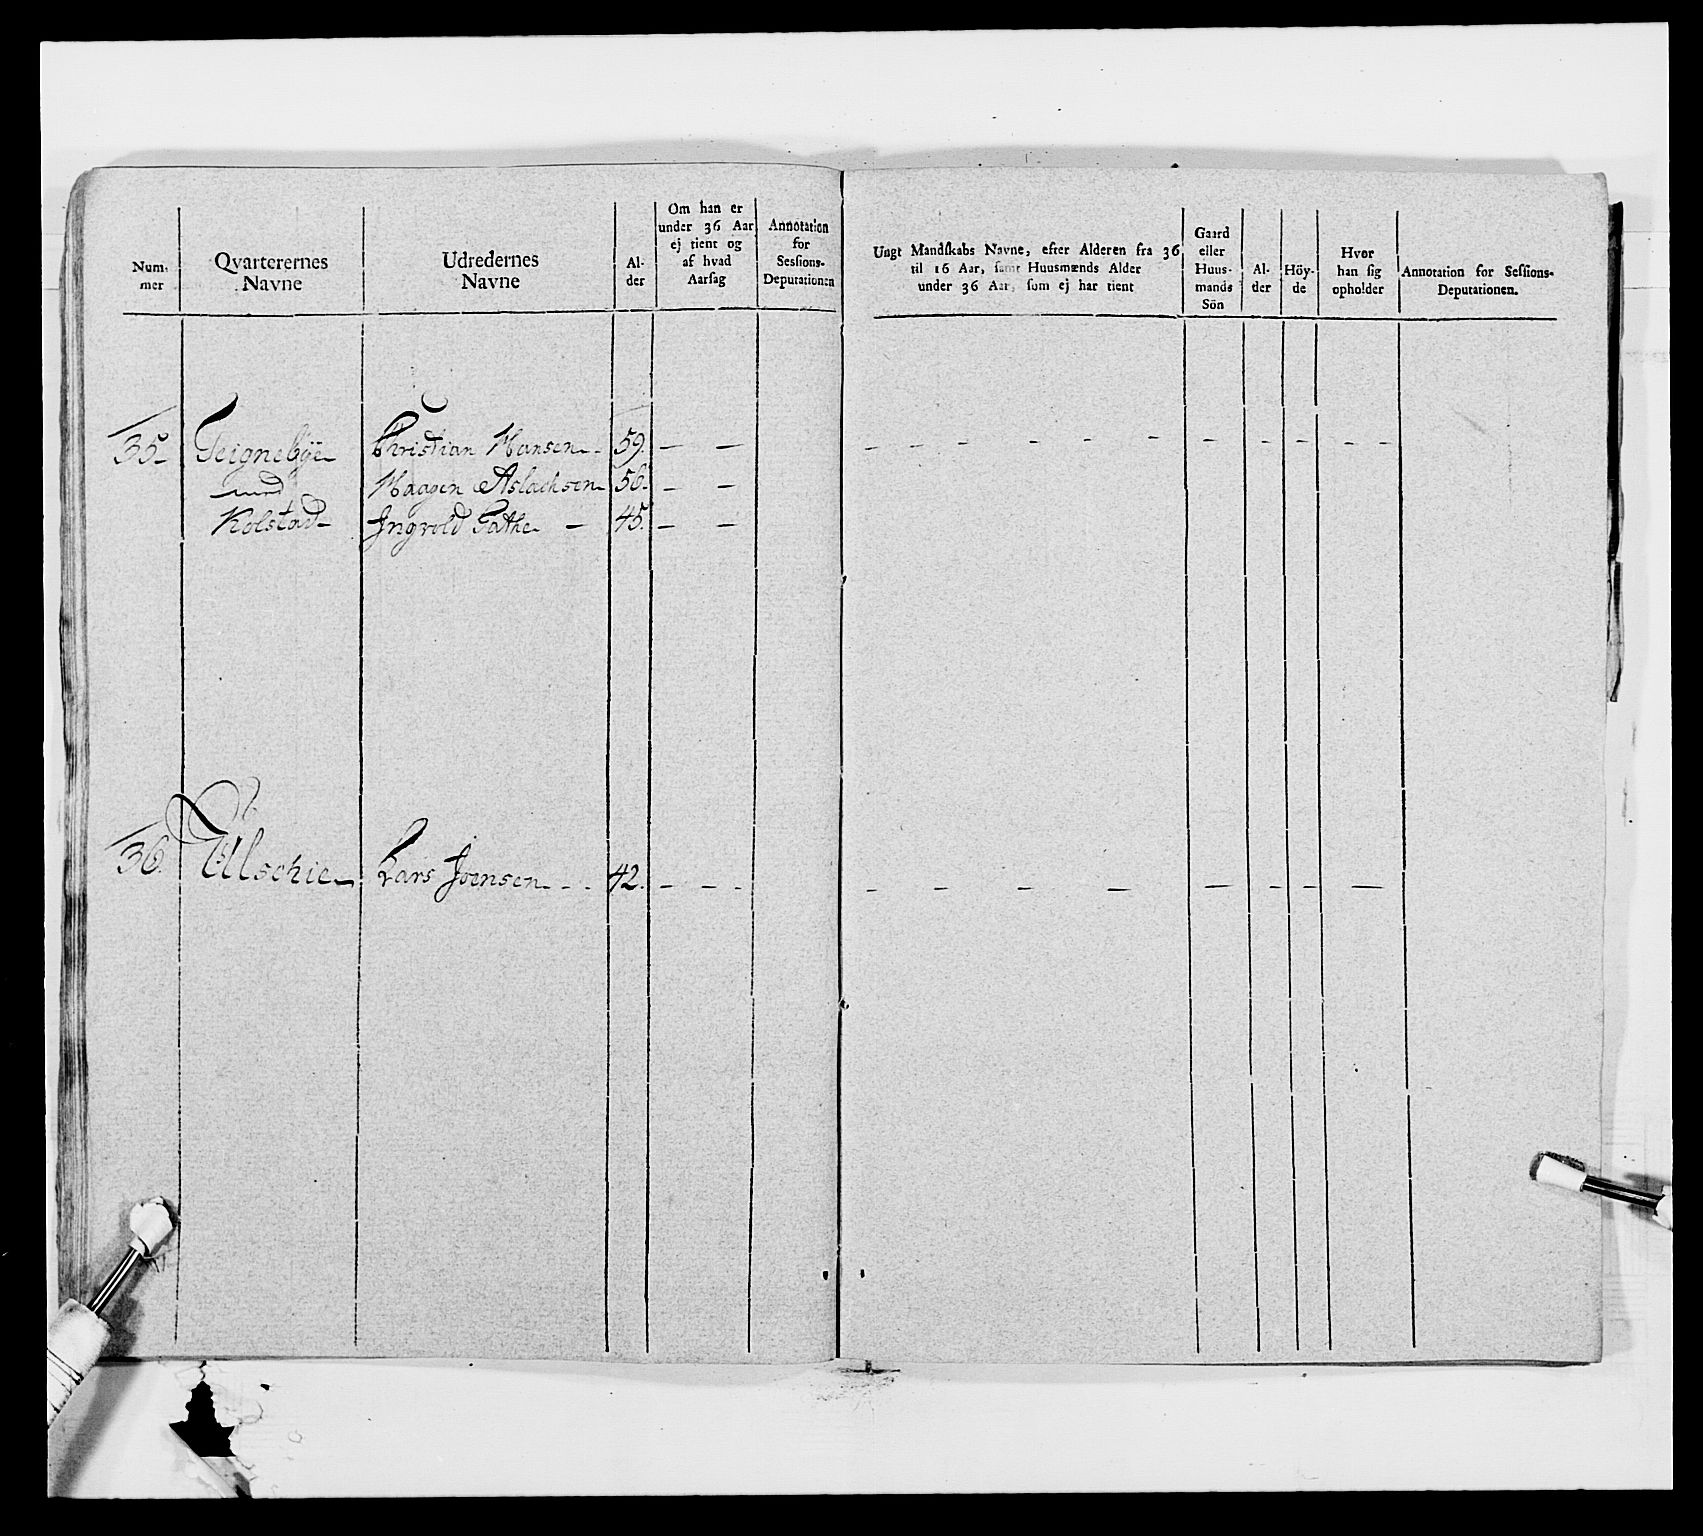 Num-
mer
Qvarterernes
Navne
Udredernes
Navne
Al-
der
Om han er
under 36 Aar
ej tient og
af hvad
Aarsag
Annotation
for
Sessions-
Deputationen
Ungt Mandskabs Navne, efter Alderen fra 36
til 16 Aar, samt Huusmænds Alder
under 36 Aar, som ej har tient
Gaard
eller
Huus-
mands
Sön
Al-
der
Höy-
de
Hvor
han sig
opholder
Annotation for Sessions-
Deputationen.
35. Teignebÿe Christian Hansen - 59. — —
med Haagen Aslachsen 56. — —
Kolstad Ingvold Gathe — 45. — —
36. Ulschie Lars Joensen - - - 42. — — -